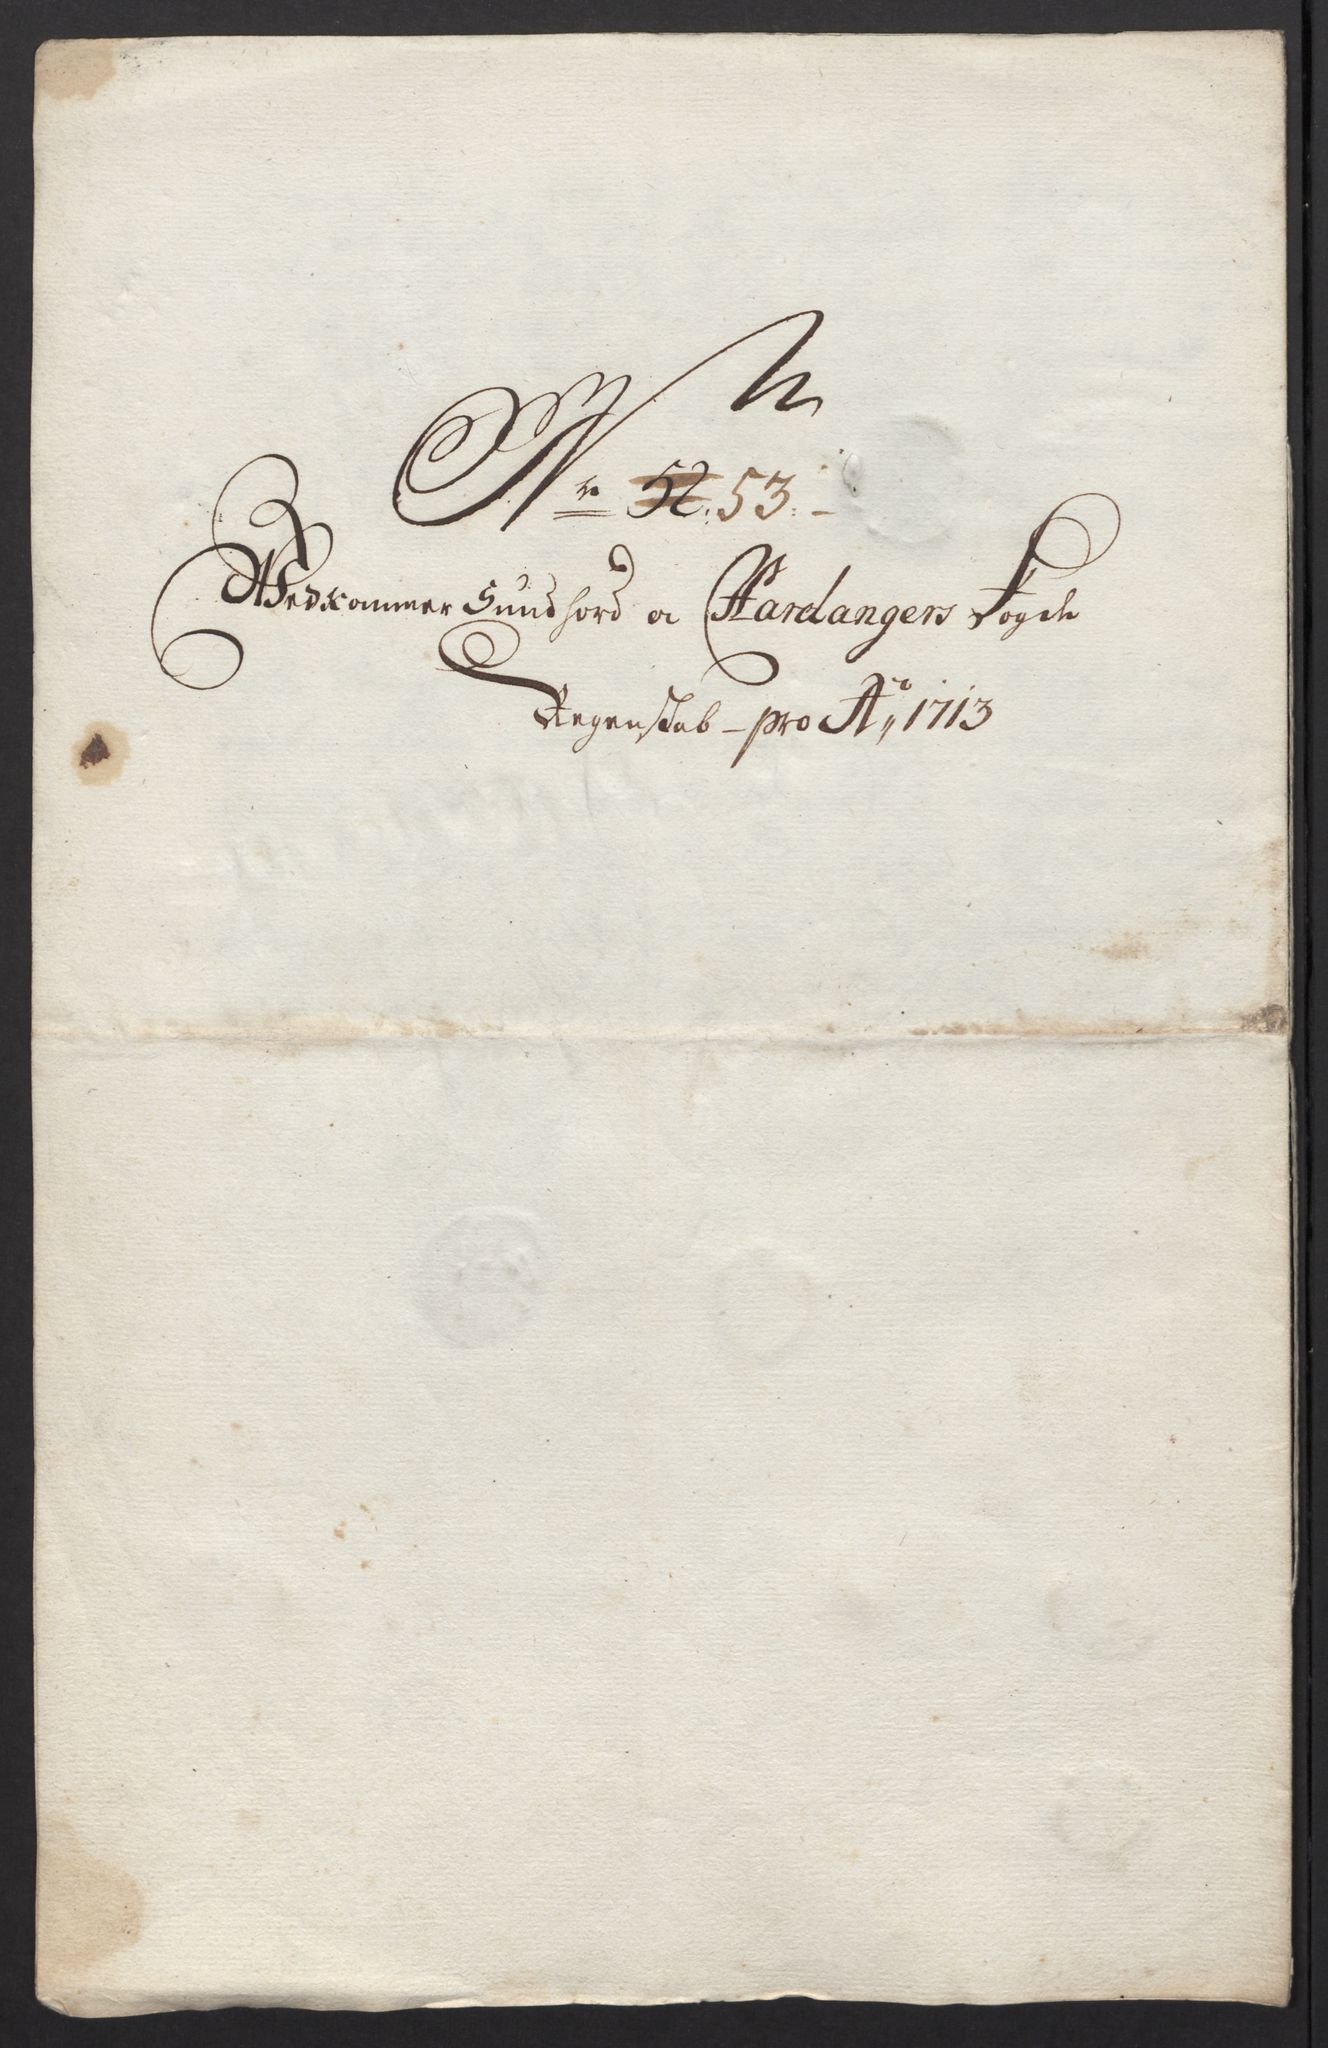 No 52: 53:-
Vedkommer Sundhord oc Hardangers Fogde
Regenskab - pro Ao, 1713